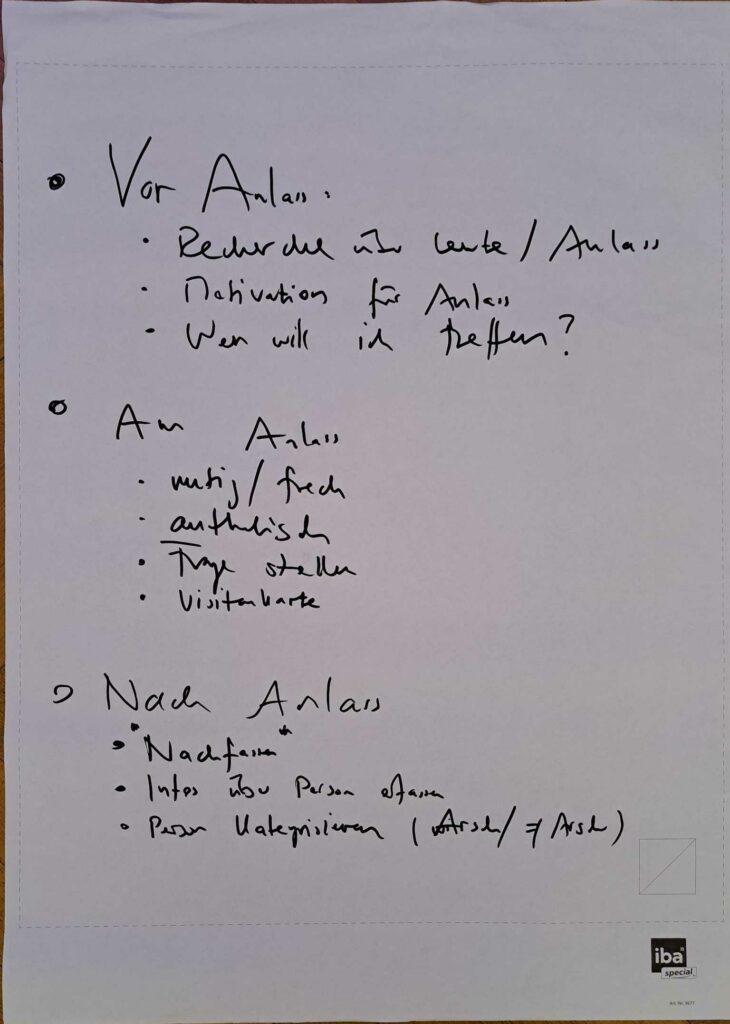 • Vor Anlass:
· Recherche über Leute / Anlass
· Motivation für Anlass
· Wen will ich treffen?
• Am Anlass
· mutig / frech
· authetisch
· Frage stellen
· Visitenkarte
• Nach Anlass
• "Nachfassen"
• Infos über Person erfassen
• Person Kategorisieren ( Arsch / ≠ Arsch )
iba
special
Art. Nr. 3677